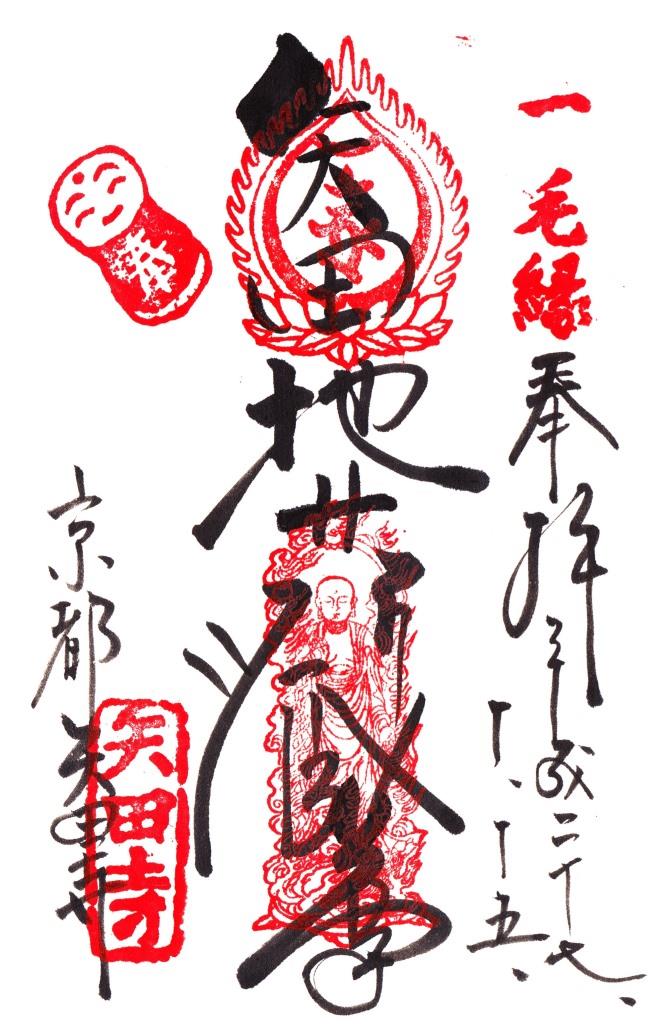 一毛縁
奉拝 平成二十七、
十、十五、
矢田地蔵尊
京都 矢田寺
矢田寺